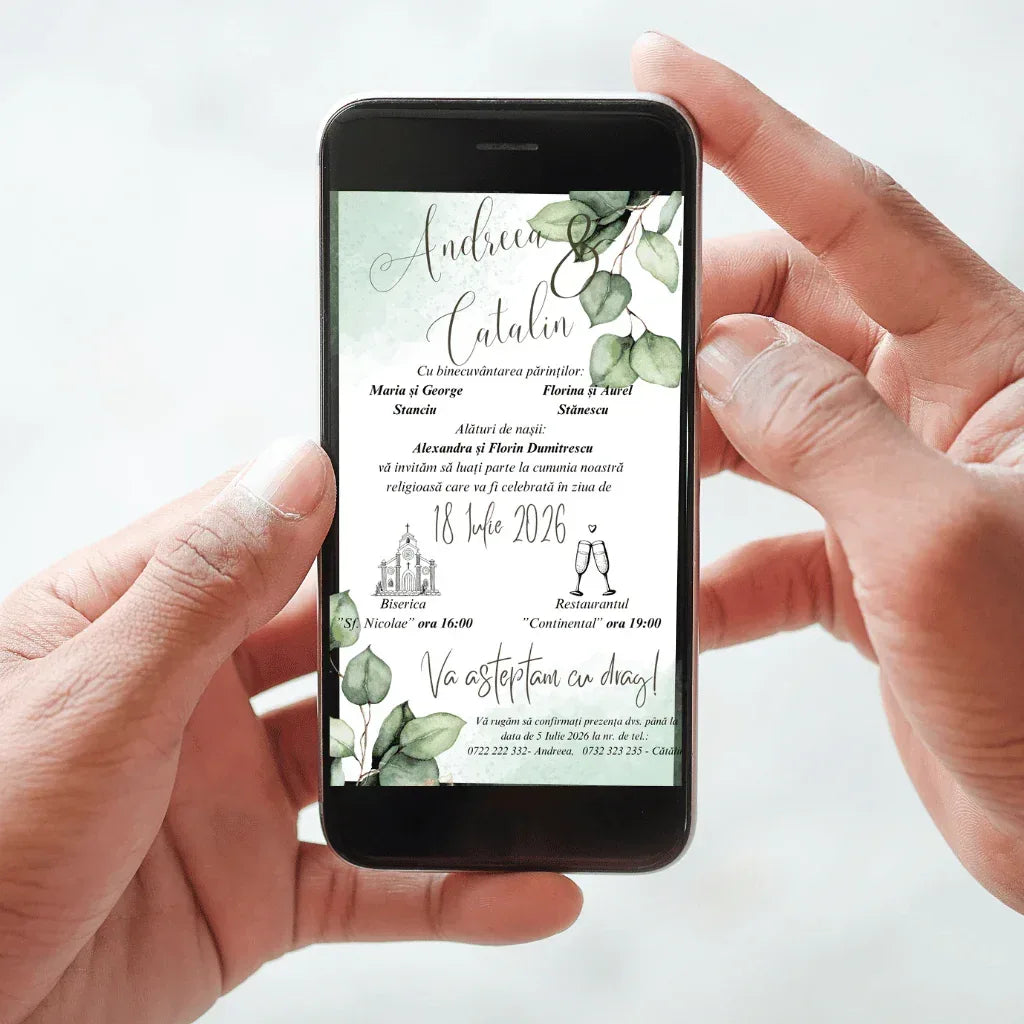 Andreea &
Catalin
Cu binecuvântarea părinților:
Maria și George Florina și Aurel
Stanciu Stănescu
Alături de nașii:
Alexandra și Florin Dumitrescu
vă invităm să luați parte la cununia noastră
religioasă care va fi celebrată în ziua de
18 Iulie 2026
Biserica Restaurantul
"Sf. Nicolae” ora 16:00 ”Continental” ora 19:00
Va asteptam cu drag!
Vă rugăm să confirmați prezența dvs. până la
data de 5 Iulie 2026 la nr. de tel.:
0722 222 332- Andreea, 0732 323 235 -